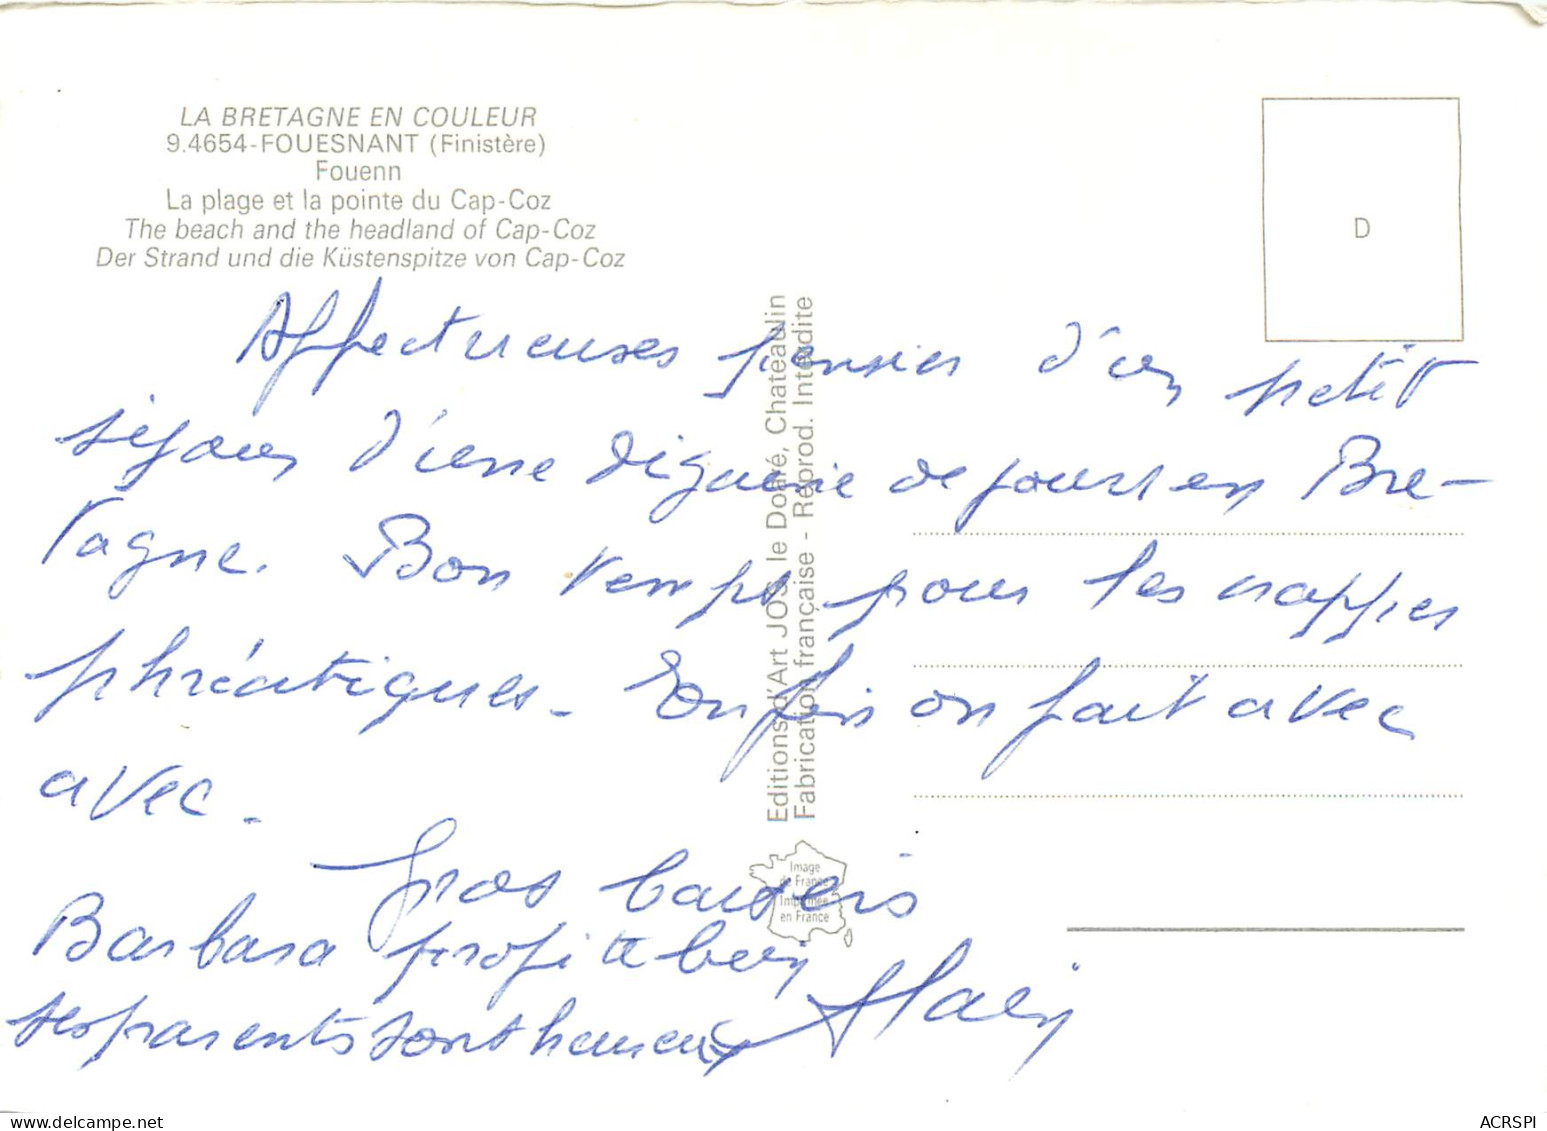 LA BRETAGNE EN COULEUR
9.4654-FOUESNANT (Finistère)
Fouenn
La plage et la pointe du Cap-Coz
The beach and the headland of Cap-Coz
Der Strand und die Küstenspitze von Cap-Coz
D
Affectueuses pensées d'un petit
séjour d'une dizaine de jours en Bre-
tagne. Bon temps pour les nappes
phréatiques. Enfin on fait avec
avec.
Gros baisers
Barbara profite bien
ses parents sont heureux
Alain
Editions d'Art JOS le Doaré, Chateaulin
Fabrication française - Reprod. Interdite
Image
de France
Imprimée
en France
delcampe.net
ACRSPI